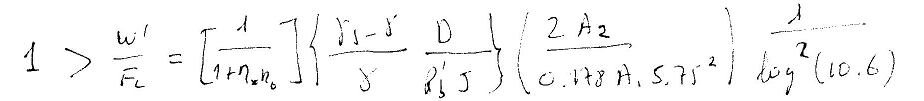 1 > W'/F_L = [1/1+η_*η_0] {γ_s-γ/γ D/R'_b J} (2 A_2/0.178 A_1 5.75^2) 1/log^2(10.6)